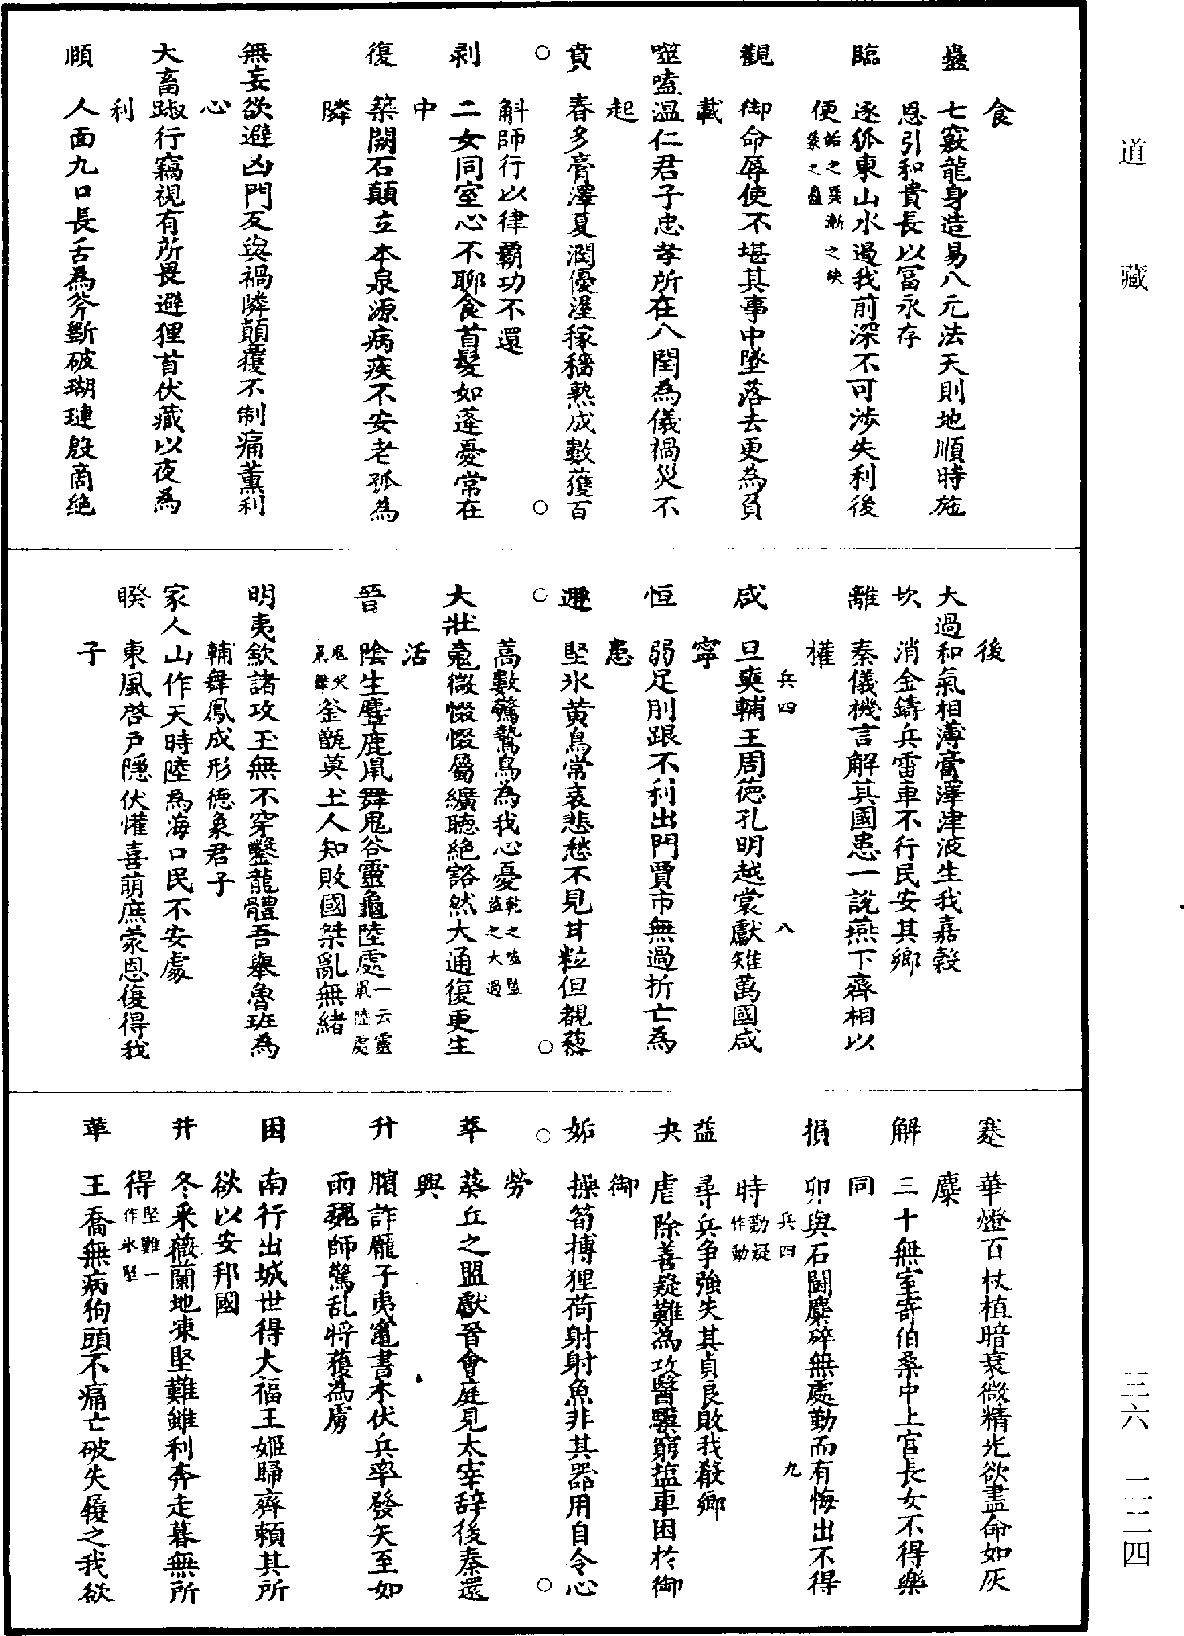 食
蠱　七竅龍身造易八元法天則地順時施
恩引和貴長以冨永存
臨　逐狐東山水過我前深不可涉失利後
便姤之巽漸之咉
觀　御命辱使不堪其事中墜落去更為負
載
噬嗑温仁君子忠孝所在八閏為儀禍災不
起
賁　春多膏澤夏潤優渥稼穡熟成數獲百
斛師行以律霸功不還
剥　二女同室心不聊食首髮如蓬憂常在
中
復　築闕石顛立本泉源病疾不安老孤為
隣
無妄欲避凶門反與禍隣顛覆不制痛薰利
心
大畜踧行竊視有所畏避狸首伏藏以夜為
利
頤　人面九口長舌為斧斲破瑚璉殷商絶
後
大過和氣相薄膏澤津液生我嘉穀
坎　消金鑄兵雷車不行民安其鄉
離　秦儀機言解其國患一說燕下齊相以
權
兵四　八
咸　旦奭輔王周德孔明越裳獻雉萬國咸
寧
恒　弱足刖跟不利出門賈市無過折亡為
患
遯　堅氷黄鳥常哀悲愁不見甘粒但覩藜
蒿數驚鷙鳥為我心憂乾之噬嗑益之大過
大壯毚微惙惙屬纊聴絶豁然大通復更生
活
晉　陰生麞鹿鼠舞鬼谷靈龜陸處一云靈鼠陸處
鬼火魚舞釜甑莫土人知敗國桀亂無緒
明夷飲諸攻玉無不穿鑿龍體吾舉魯班為
輔舞鳳成形德象君子
家人山作天時陸為海口民不安處
睽　東風啓戸隱伏懽喜萌庶蒙恩復得我
子
蹇　華燈百枝植暗衰微精光欲盡命如灰
糜
解　三十無室寄伯桑中上宫長女不得樂
同
損　卵與石鬬麋碎無處勤而有悔出不得
兵四　九
時勤疑作動
益　尋兵争強失其貞良敗我殽鄉
夬　虐除善疑難為攻醫驥窮塩車困於御
御
姤　操笱搏狸荷射射魚非其器用自令心
勞
萃　葵丘之盟獻晉會庭見太宰辞後秦還
興
升　臏詐龐子夷竈書木伏兵卒發矢至如
雨魏師驚乱將獲為虜
困　南行出城世得大福王姬歸齊賴其所
欲以安邦國
井　冬采薇蘭地凍堅難雖利奔走暮無所
得堅難一作氷堅
革　王喬無病狗頭不痛亡破失履之我欲
道藏
三六　一二四